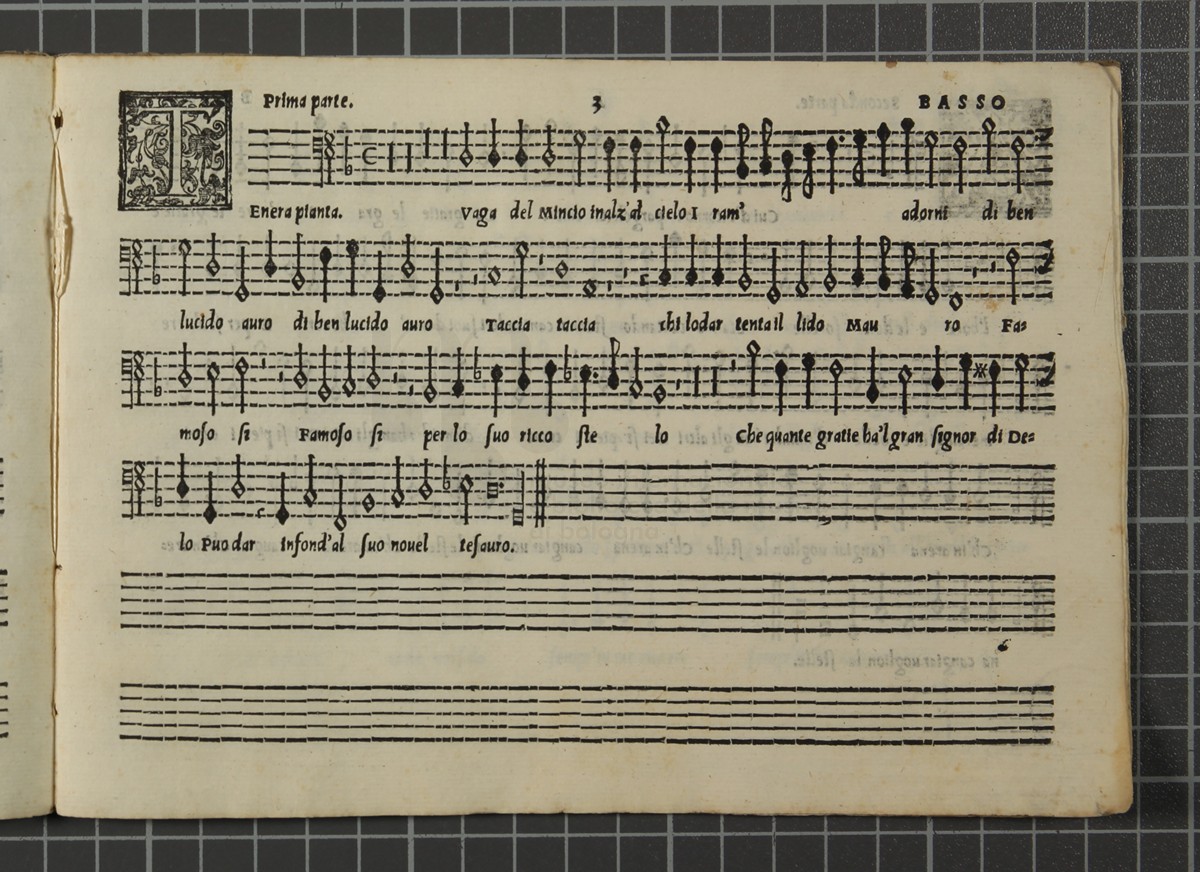 Prima parte. 3 BASSO
T Enera pianta. Vaga del Mincio inalz'al cielo I ram' adorni di ben
lucido auro di ben lucido auro Taccia taccia chi lodar tenta il lido Mau ro Fa=
moso si Famoso si per lo suo ricco ste lo Che quante gratie ha'l gran signor di De=
lo Puo dar infond'al suo nouel tesauro.